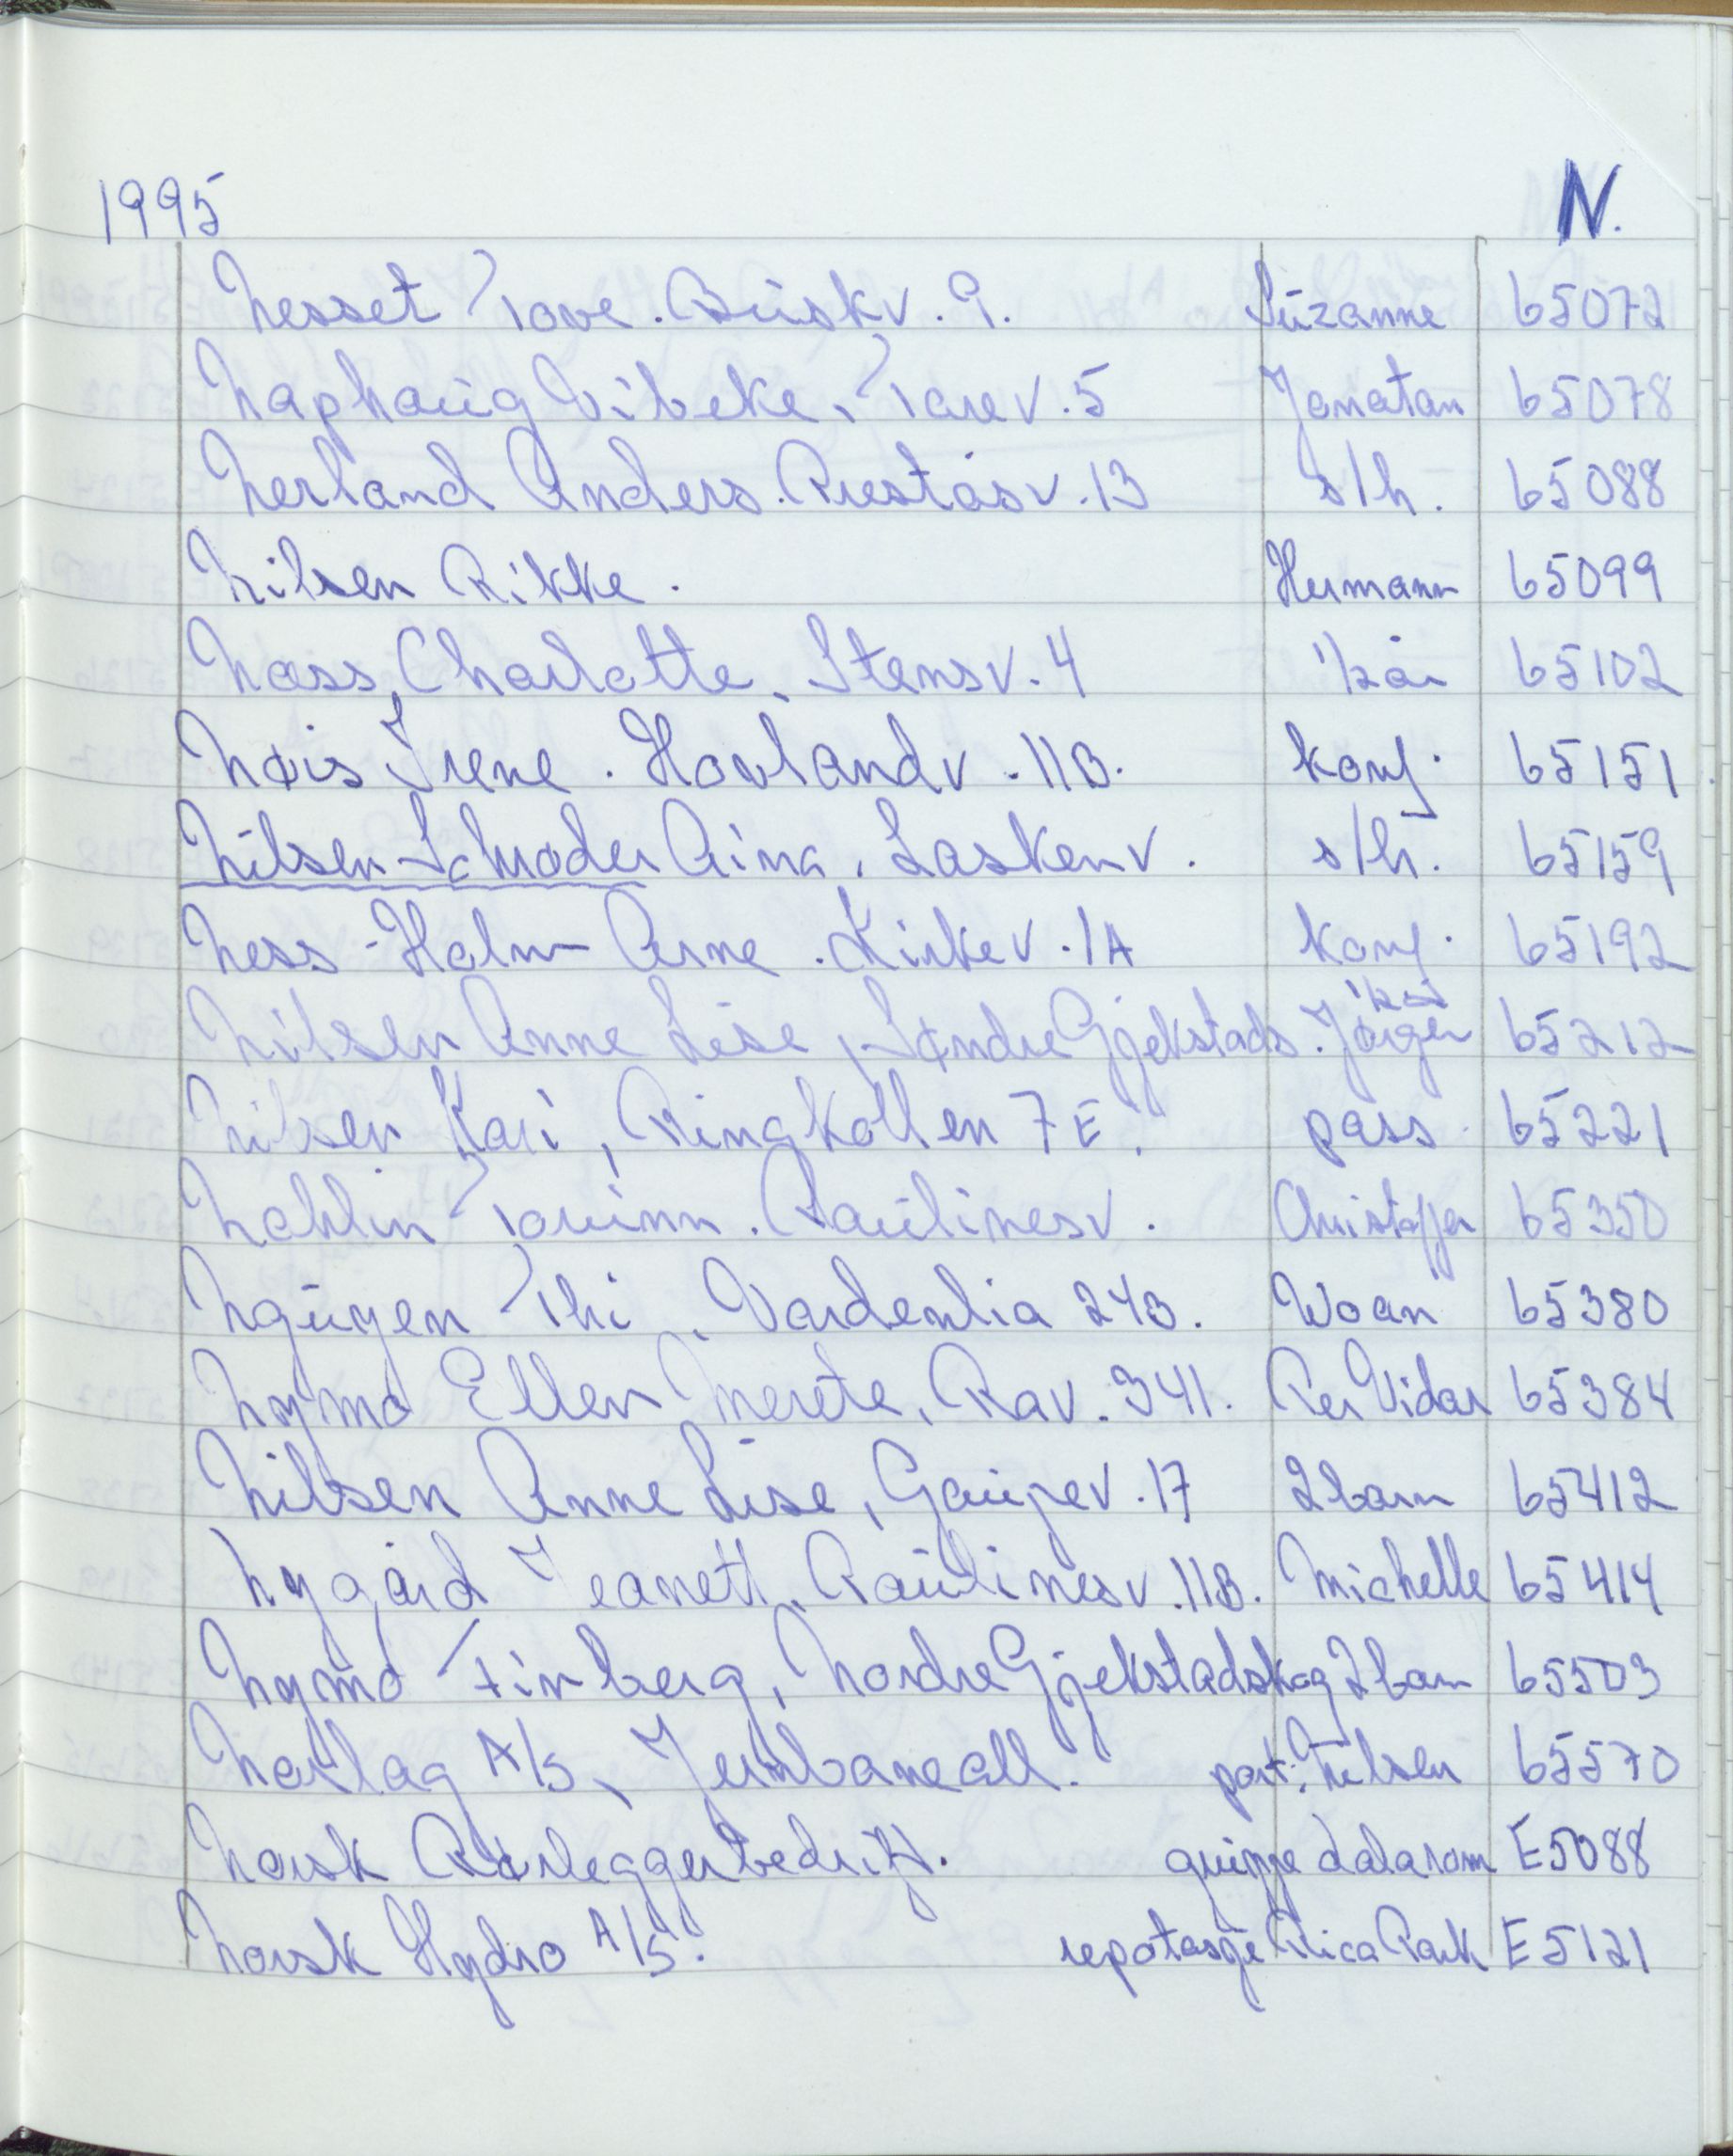 1995 N.
Nesset Tove. Buskv. 9. Suzanne 65072
Naphaug Vibeke, Tarev. 5 Jonatan 65078
Nerland Anders. Preståsv. 13 s/h. 65088
Nilsen Rikke. Hermann 65099
Noss, Charlotte, Stensv. 4 1/2 år 65102
Nøis Irene. Hovlandv. 11B. konf. 65151
Nilsen-Schrøder Aina, Laskenv. s/h. 65159
Ness-Holm Arne. Kirkev. 1A konf. 65192
Nilsen Anne Lise, Søndre Gjekstads. Jørgen 65212
Nilsen Kari, Ringkollen 7E. pass 65221
Paulinesv. Christoffer 65350
Nguyen Thi, Vardenlia 24B. Woan 65380
Nymo Ellen Merete, Rav. 341. Per Vidar 65384
Nilsen Anne Lise, Gaupev. 17 2 barn 65412
Nygård Jeanett, Paulinesv. 11B. Michelle 65414
Nymo Finberg, Nordre Gjekstadskog 2 barn 65503
Norlag A/S, Jernbaneall. port. Nilsen 65570
Norsk Rørleggerbedrift. gruppe datarom E5088
Norsk Hydro A/S. repotasje Rica Park E5121